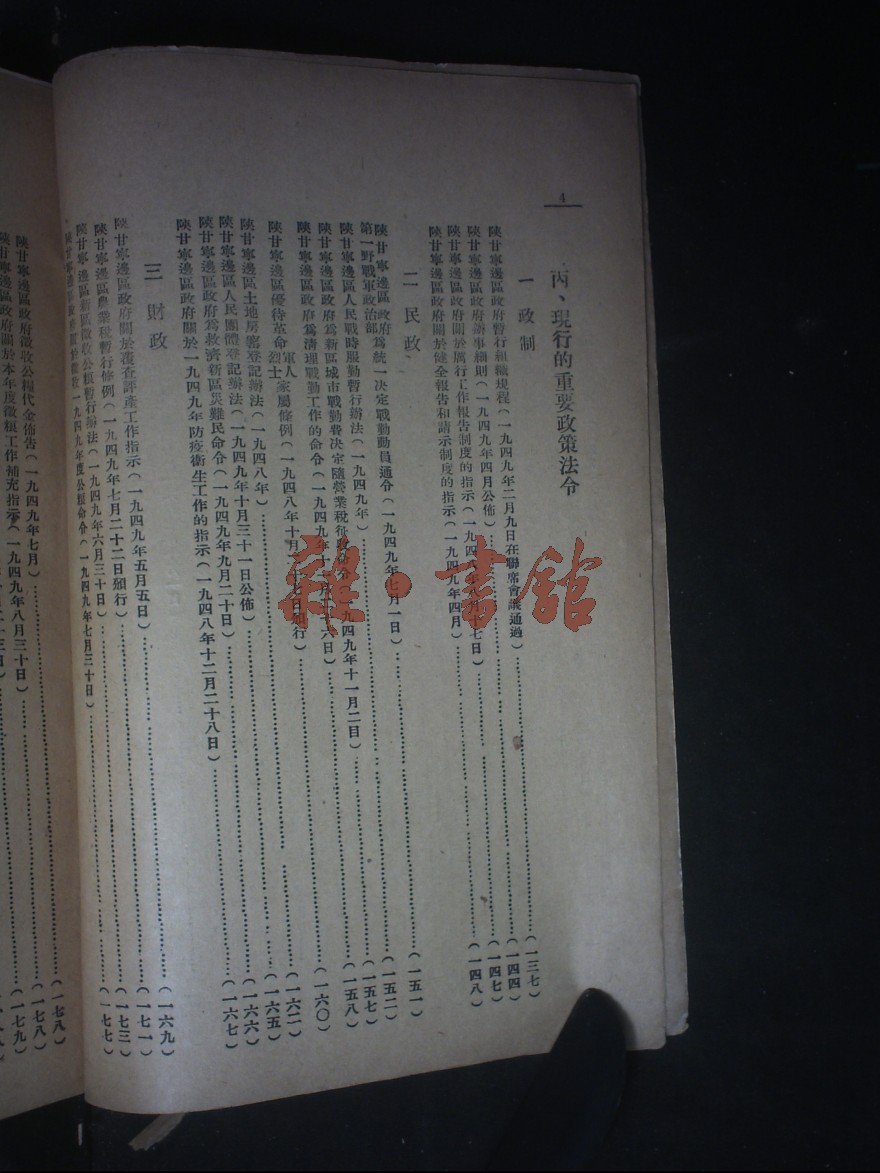 4
丙、現行的重要政策法令
一 政制
陝甘寧邊區政府暫行組織規程(一九四九年二月九日在聯席會議通過)……(一三七)
陝甘寧邊區政府辦事細則(一九四九年四月公佈)……(一四四)
陝甘寧邊區政府關於厲行工作報告制度的指示(一九四八年 月 七日)……(一四七)
陝甘寧邊區政府關於健全報告和請示制度的指示(一九四九年四月)……(一四八)
二 民政
陝甘寧邊區政府 為統一決定戰勤動員通令(一九四九年七月一日)……(一五一)
第一野戰軍政治部
陝甘寧邊區人民戰時服勤暫行辦法(一九四九年)……(一五二)
陝甘寧邊區政府為新區城市戰勤費決定隨營業稅征收 令(一九四九年十一月二日)……(一五七)
陝甘寧邊區政府為清理戰勤工作的命令(一九四九年十 月二十六日)……(一五八)
陝甘寧邊區優待革命 軍人 烈士 家屬條例(一九四八年十月 十七日頒行)……(一六〇)
陝甘寧邊區土地房窰登記辦法(一九四八年)……(一六二)
陝甘寧邊區人民團體登記辦法(一九四九年十月三十一日公佈)……(一六五)
陝甘寧邊區政府為救濟新區災難民命令(一九四九年九月二十日)……(一六六)
陝甘寧邊區政府關於一九四九年防疫衛生工作的指示(一九四八年十二月二十八日)……(一六七)
三 財政
陝甘寧邊區政府關於覆查評產工作指示(一九四九年五月五日)……(一六九)
陝甘寧邊區農業稅暫行條例(一九四九年七月二十二日頒行)……(一七一)
陝甘寧邊區新區徵收公糧暫行辦法(一九四九年六月三十日)……(一七三)
陝甘寧邊區政府關於徵收一九四九年度公糧命令(一九四九年七月三十日)……(一七七)
陝甘寧邊區政府徵收公糧代金佈告(一九四九年七月)……(一七八)
陝甘寧邊區政府關於本年度徵糧工作補充指示(一九四九年八月三十日)……(一七八)
(一七九)
雜·書舘